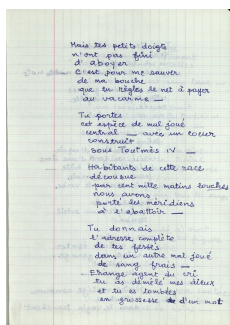 Mais tes petits doigts
n'ont pas fini
d'aboyer
C'est pour me sauver
de ma bouche
que tu règles le net à payer
du vacarme —
Tu portes
cet espèce de mal joué
central — avec un cœur
construit
sous Toutmès IV —
Habitants de cette race
décousue
par cent mille matins louches
nous avons
porté les méridiens
à l'abattoir —
Tu donnais
l'adresse complète
de tes
dans un autre mal joué
de sang frais —
Etrange agent du cri
tu as démêlé mes dieux
et tu es tombée
en grossesse d'un mot